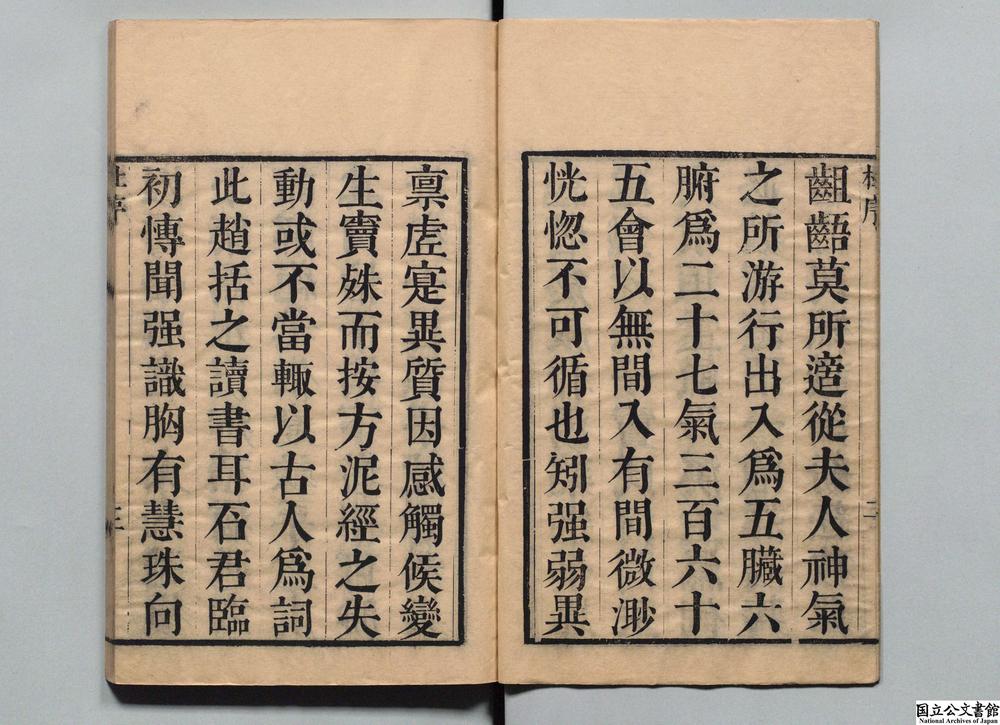 齟齬莫所適從夫人神氣
之所游行出入爲五臟六
腑爲二十七氣三百六十
五會以無間入有間微渺
恍惚不可循也矧强弱異
稟虛寔異質因感觸候變
生竇姝而按方泥經之失
動或不當輙以古人爲詞
此趙括之讀書耳石君臨
初愽聞强識胸有慧珠向
国立公文書館
National Archives of Japan